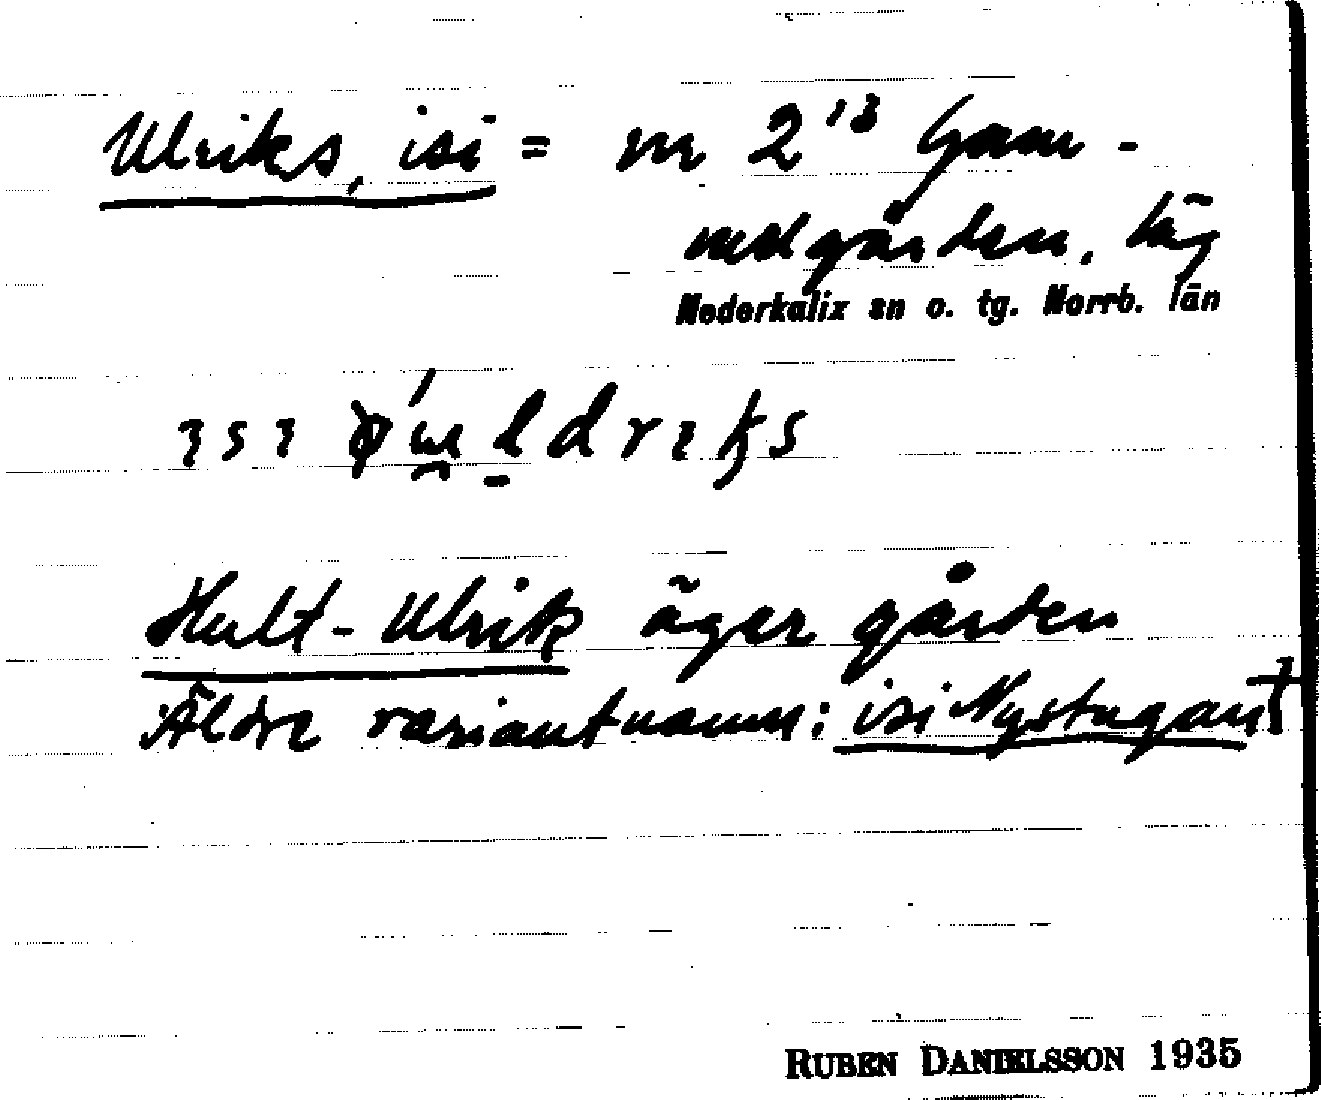 Ulriks, isi = nr 2¹³ Gam-
melgården, läg
Nederkalix sn o. tg. Norrb. län
Hult-Ulrik äger gården
Äldre variantnamn: isi Nystugan†
RUBEN DANIELSSON 1935